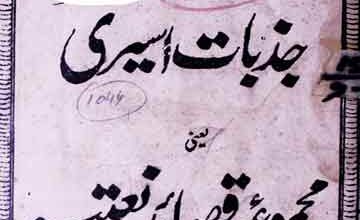 جذبات اسیری
1046
یعنی
مجموعۂ قصائد نعتیہ